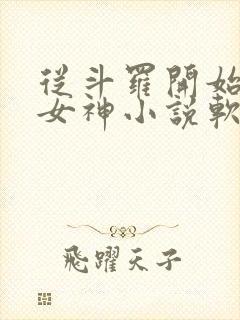 從斗羅開始
女神小說軟
飛躍天子